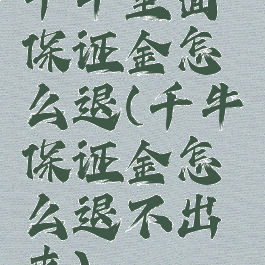 千牛里面
保证金怎
么退(千牛
保证金怎
么退不出
来)